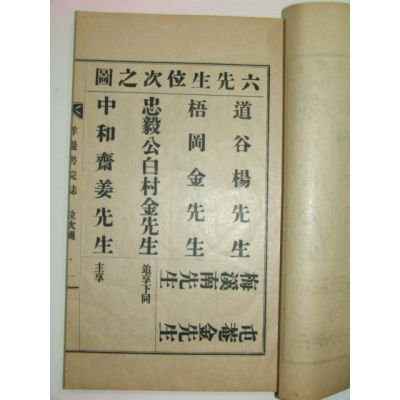 六先生位次之圖
道谷楊先生
梧岡金先生
忠毅公白村金先生 追享下同
中和齋姜先生 主享
梅溪南先生
屯菴金先生
書院誌 位次圖 一